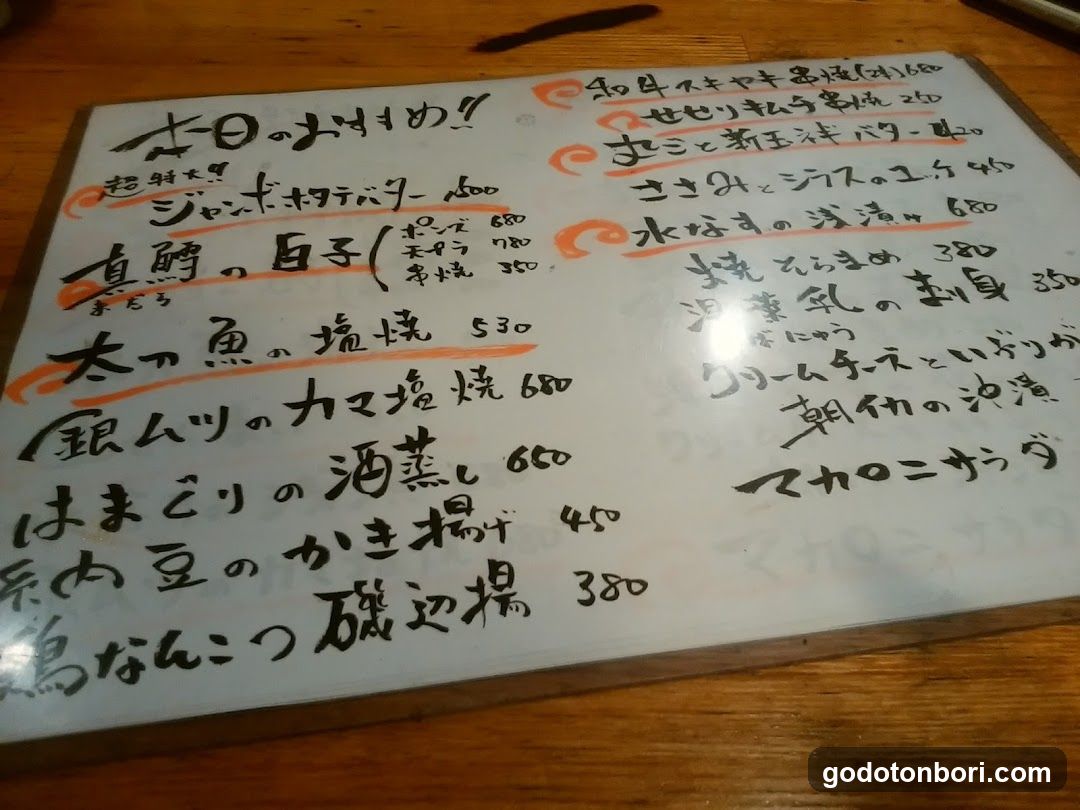 本日のおすすめ!!
超特大!!
ジャンボホタテバター 1500
真鱈の白子(ポンズ 680
まだら
天プラ 780
串焼 350
太刀魚の塩焼 530
銀ムツのカマ塩焼 680
はまぐりの酒蒸し 650
納豆のかき揚げ 450
鶏なんこつ磯辺揚 380
和牛スキヤキ串焼(2本)680
せせりキムチ串焼 250
丸ごと新玉ネギバター 420
ささみとシラスのユッケ 450
水なすの浅漬け 680
焼そらまめ 380
湯葉乳の刺身 350
ばにゅう
クリームチーズといぶりが
朝イカの沖漬
マカロニサラダ
godotonbori.com